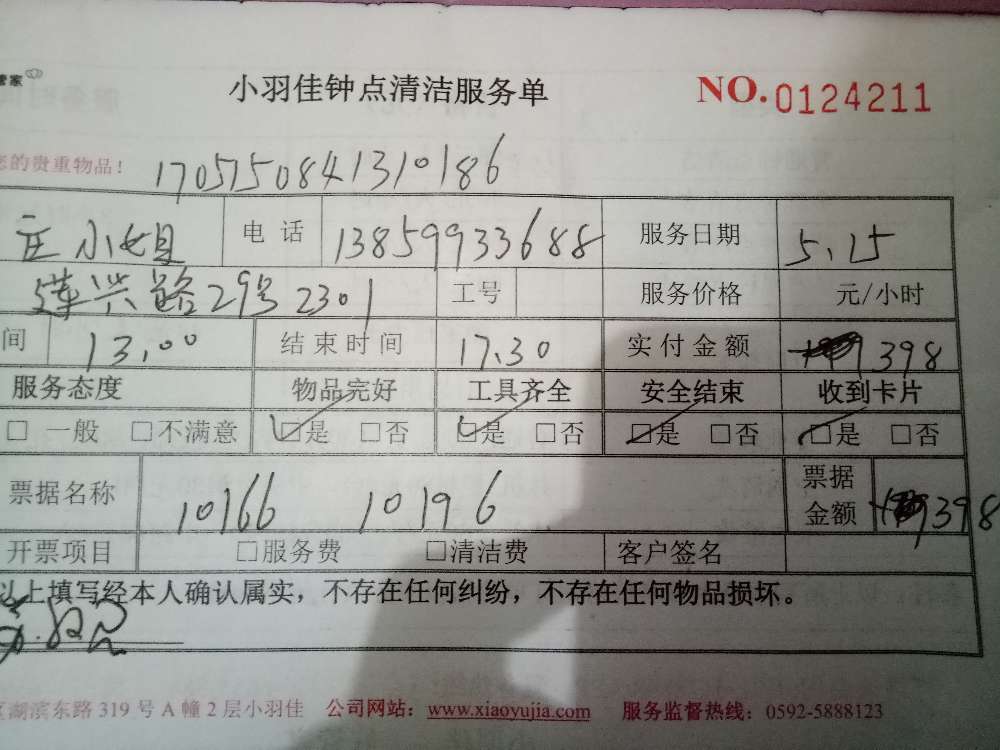 管家
小羽佳钟点清洁服务单 NO.0124211
您的贵重物品! 1705150841310186
庄小姐 电话 13859933688 服务日期 5.15
莲兴路29号2301 工号 服务价格 元/小时
间 13.00 结束时间 17.30 实付金额 398
服务态度 物品完好 工具齐全 安全结束 收到卡片
□ 一般 □不满意 ☑是 □否 ☑是 □否 ☑是 □否 ☑是 □否
票据名称 10166 10196 票据金额 398
开票项目 □服务费 □清洁费 客户签名
以上填写经本人确认属实，不存在任何纠纷，不存在任何物品损坏。
区湖滨东路 319 号 A 幢 2 层小羽佳 公司网站：www.xiaoyujia.com 服务监督热线：0592-5888123